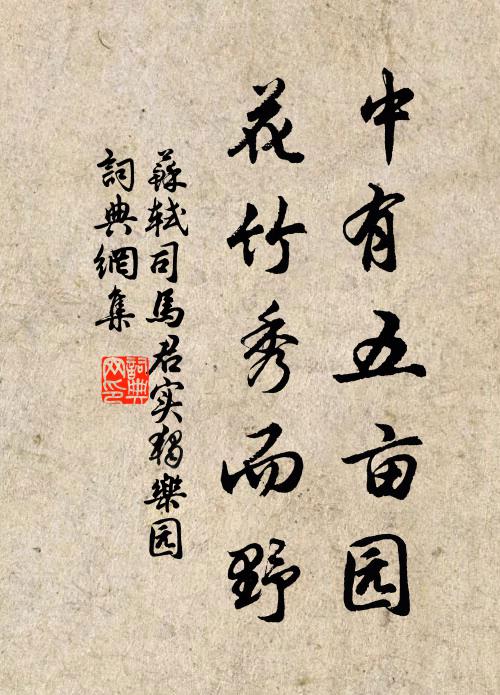 中有五亩园
花竹秀而野
蘇軾司馬君实独樂园
詞典網集
詞典网印